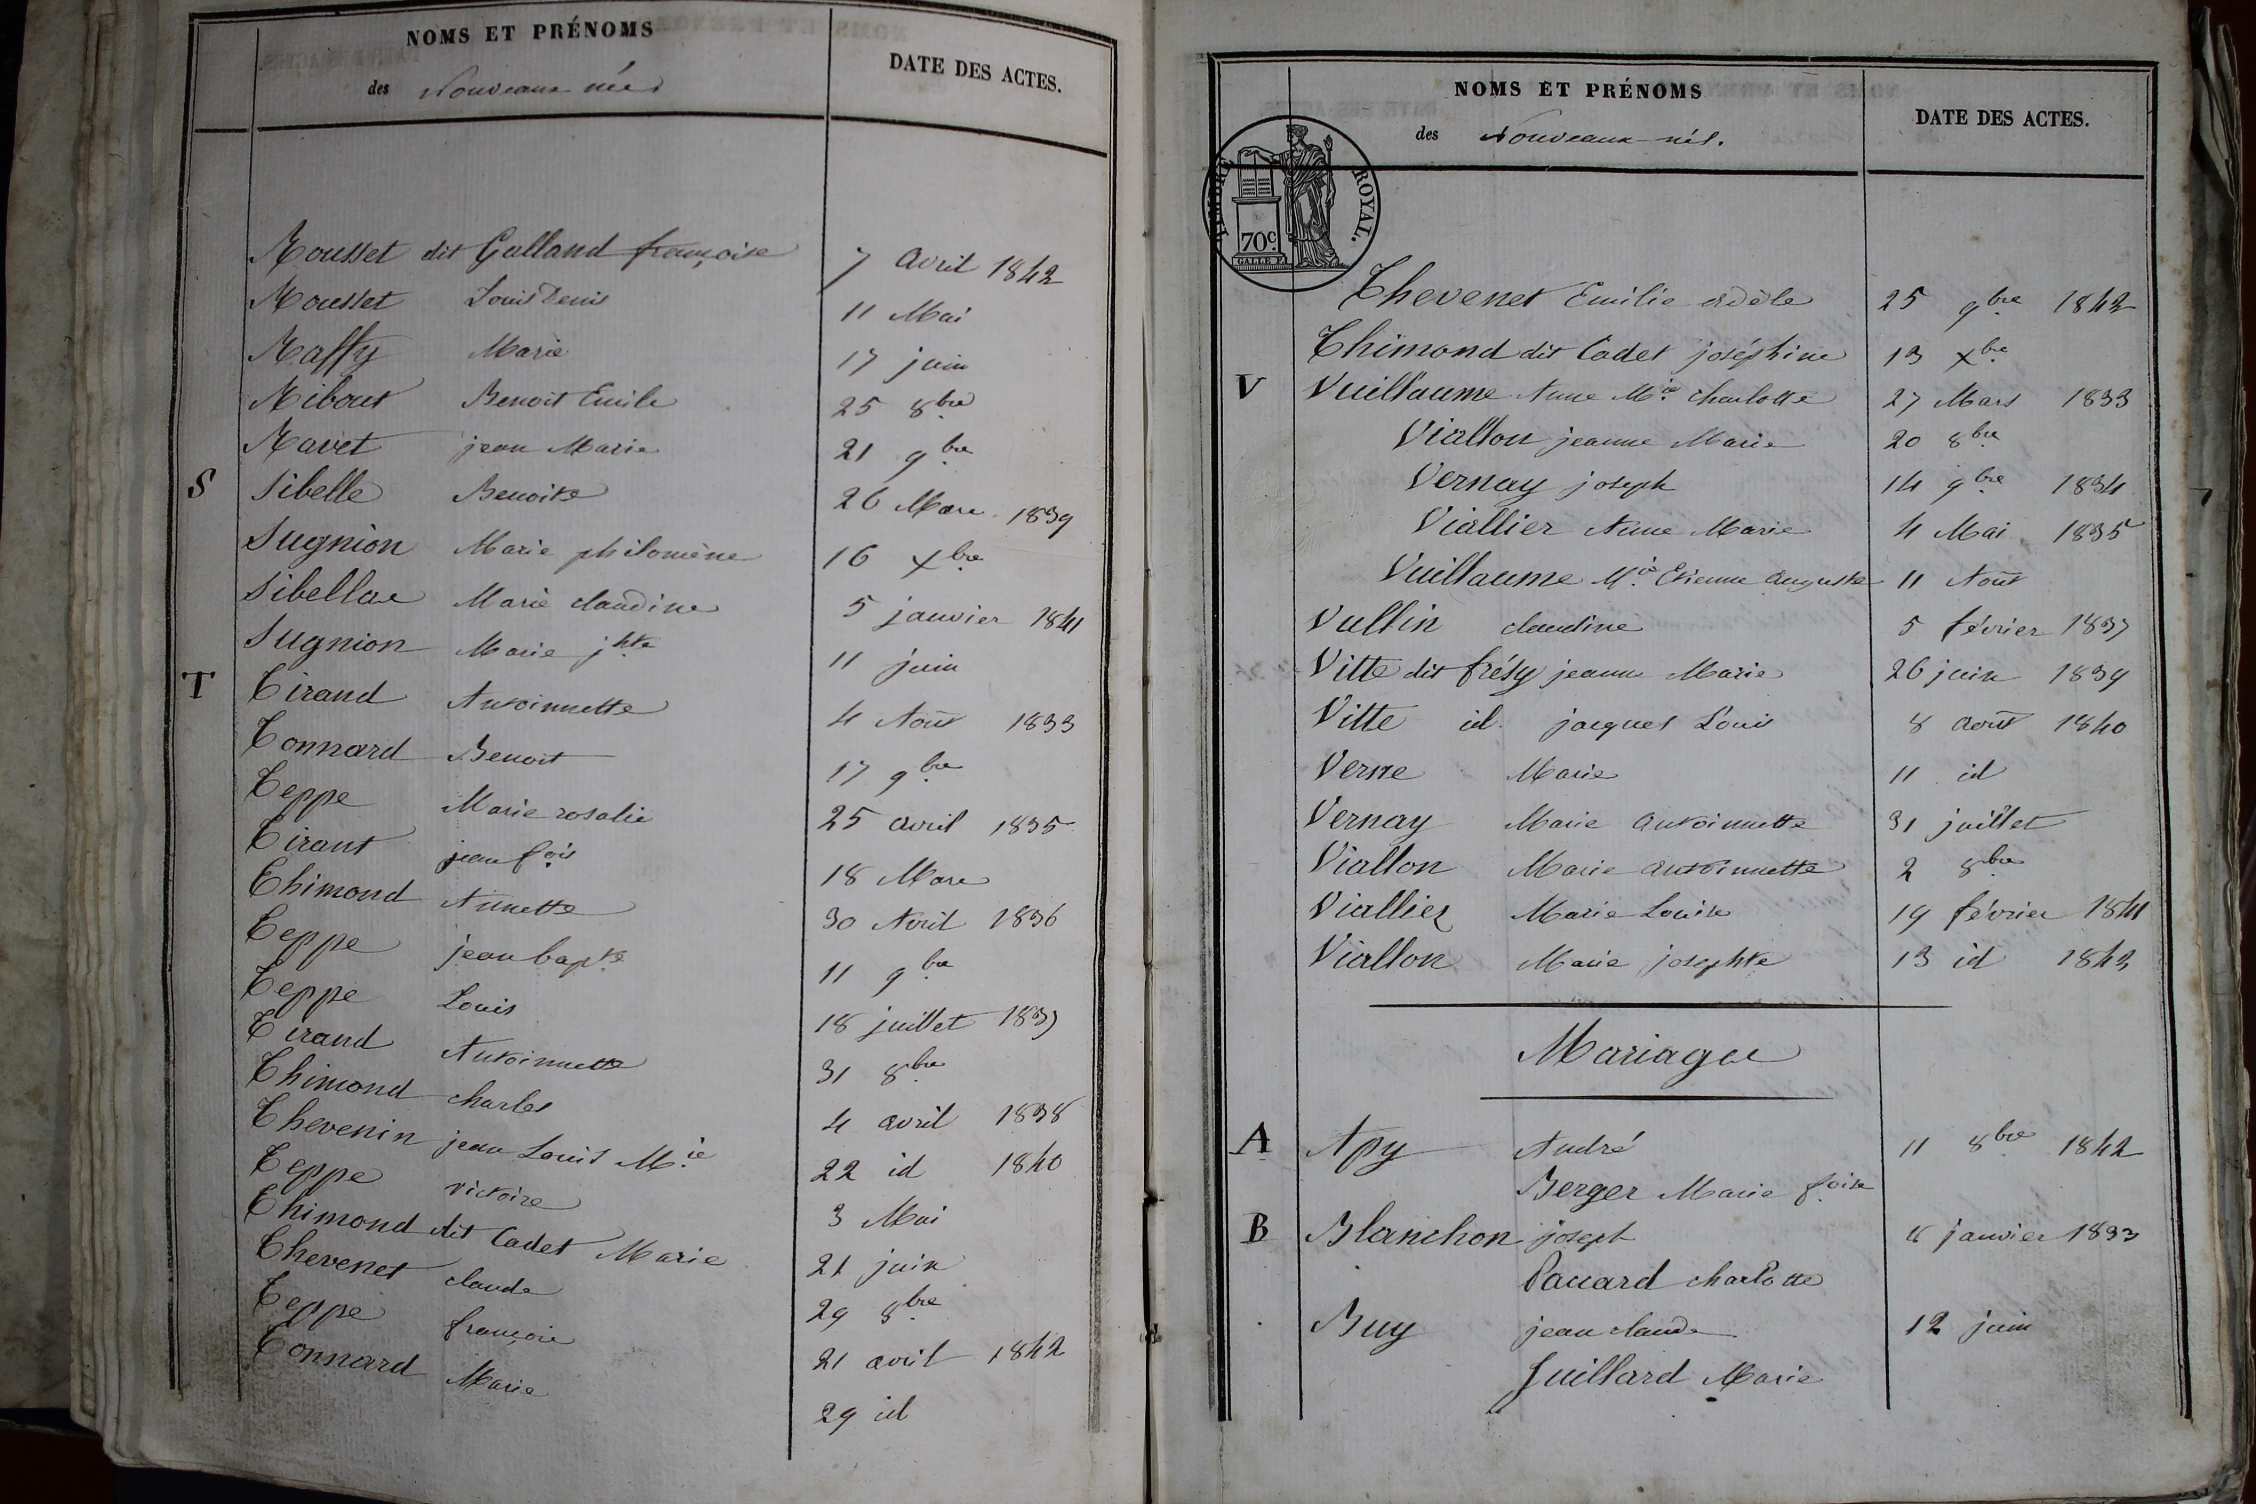 NOMS ET PRÉNOMS
des Nouveaux nés
DATE DES ACTES.
Rousset dit Galland françoise 7 avril 1842
Rousset Louis Denis 11 Mai
Raffy Marie 17 juin
Ribout Benoit Emile 25 8bre
Ravet jean Marie 21 9bre
S Sibelle Benoite 26 Mars 1839
Sugnion Marie philomène 16 Xbre
Sibelle Marie claudine 5 janvier 1841
Sugnion Marie jhte 11 juin
T Tirand Antoinnette 4 Août 1833
Tonnard Benoit 17 9bre
Teppe Marie rosalie 25 avril 1835
Tirant jean fois 18 Mars
Thimond Annette 30 Avril 1836
Teppe jean bapte 11 9bre
Teppe Louis 18 juillet 1837
Tirand Antoinnette 31 8bre
Thimond charles 4 avril 1838
Thevenin jean Louis Mie 22 id 1840
Teppe victoire 3 Mai
Thimond dit Cadet Marie 21 juin
Thevenet claude 29 8bre
Teppe françois 21 avril 1842
Tonnard Marie 29 id
NOMS ET PRÉNOMS
des Nouveaux nés.
DATE DES ACTES.
TIMBRE ROYAL.
70c.
Thevenet Emilie adèle 25 9bre 1842
Thimond dit Cadet joséphine 13 Xbre
V Vuillaume Anne Mie charlotte 27 Mars 1833
Viallon jeanne Marie 20 8bre
Vernay joseph 14 9bre 1834
Viallier Anne Marie 4 Mai 1835
Vuillaume Mie Etienne auguste 11 Août
Vullin claudine 5 février 1837
Vitte dit frésy jeanne Marie 26 juin 1839
Vitte id. jacques Louis 8 août 1840
Verne Marie 11 id
Vernay Marie antoinnette 31 juillet
Viallon Marie antoinnette 2 8bre
Viallier Marie Louise 19 février 1841
Viallon Marie josephte 13 id 1843
Mariages
A Apy André 11 8bre 1842
Berger Marie foise
B Blanchon joseph 8 janvier 1833
Pacard charlotte
Buy jean claude 12 juin
Juillard Marie